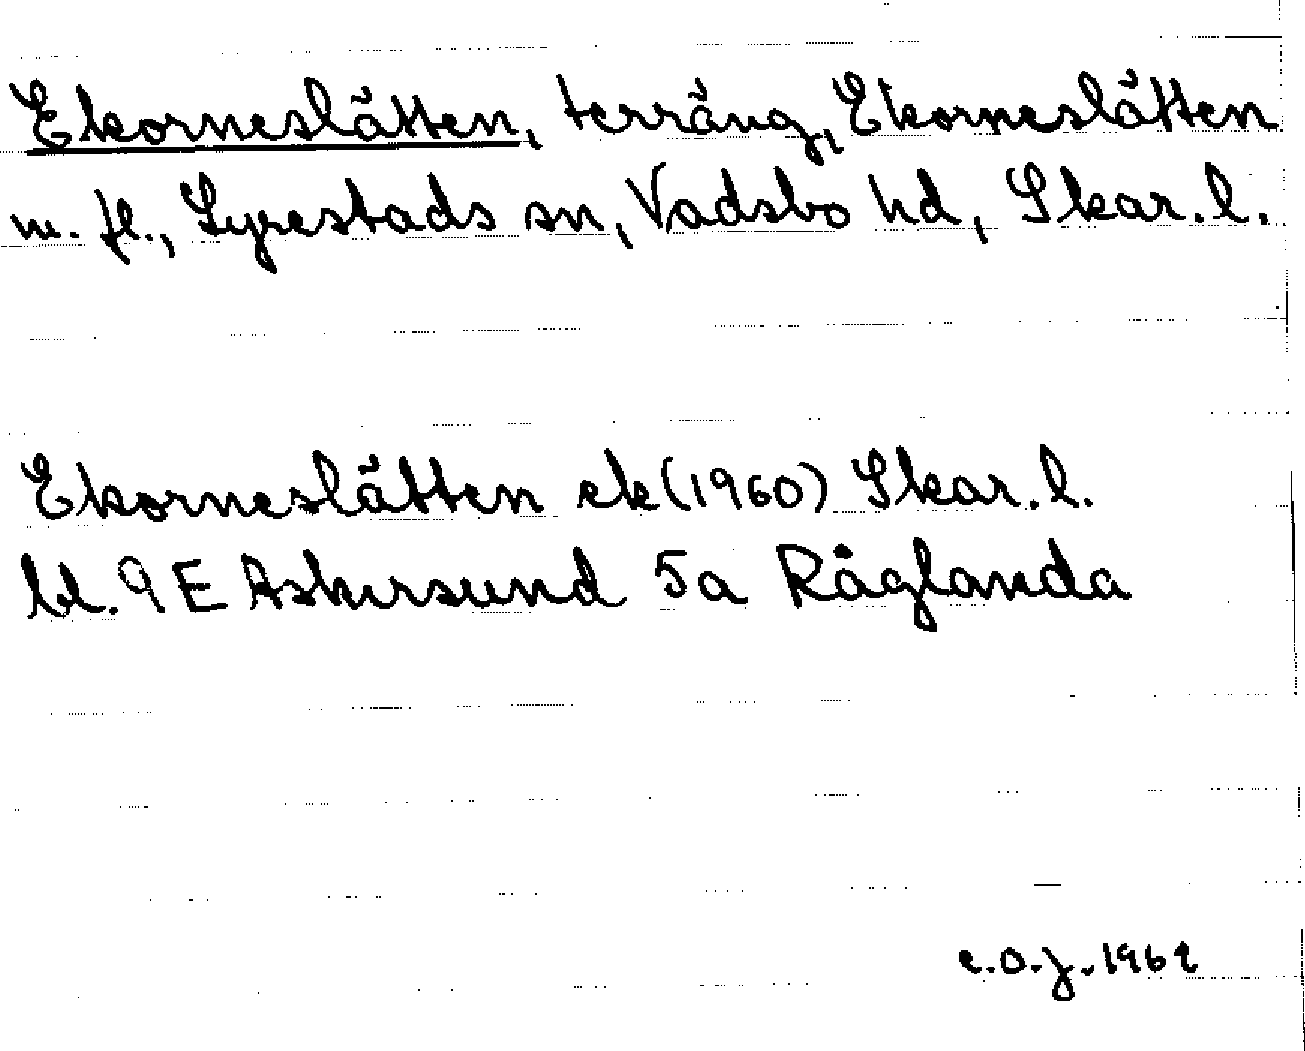 Ekorneslätten, terräng, Ekorneslätten
m. fl., Lyrestads sn, Vadsbo hd, Skar. l.
Ekorneslätten ek (1960) Skar. l.
bl. 9 E Askersund 5a Råglanda
c.o.j. 1962